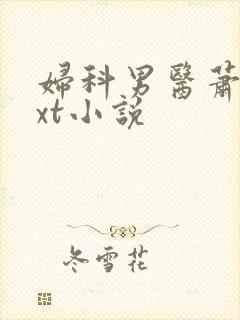 婦科男醫蕭
xt小說
冬雪花